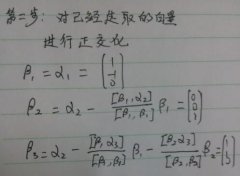 第二步: 对已经选取的向量
进行正交化
β₁ = α₁ = [1 -1 0]
β₂ = α₂ - [β₁,α₂]/[β₁,β₁] β₁ = [0 0 1]
β₃ = α₂ - [β₁,α₃]/[β₁,β₁] β₁ - [β₂,α₃]/[β₂,β₂] β₂ =